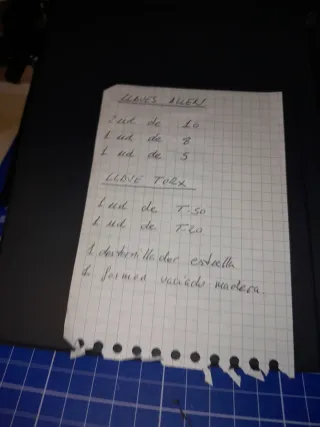 LLAVES ALLEN
2 ud de 10
1 ud de 8
1 ud de 5
LLAVE TORX
1 ud de T-50
1 ud de T-20
1 destornillador estrella
1 formon vaciado madera.